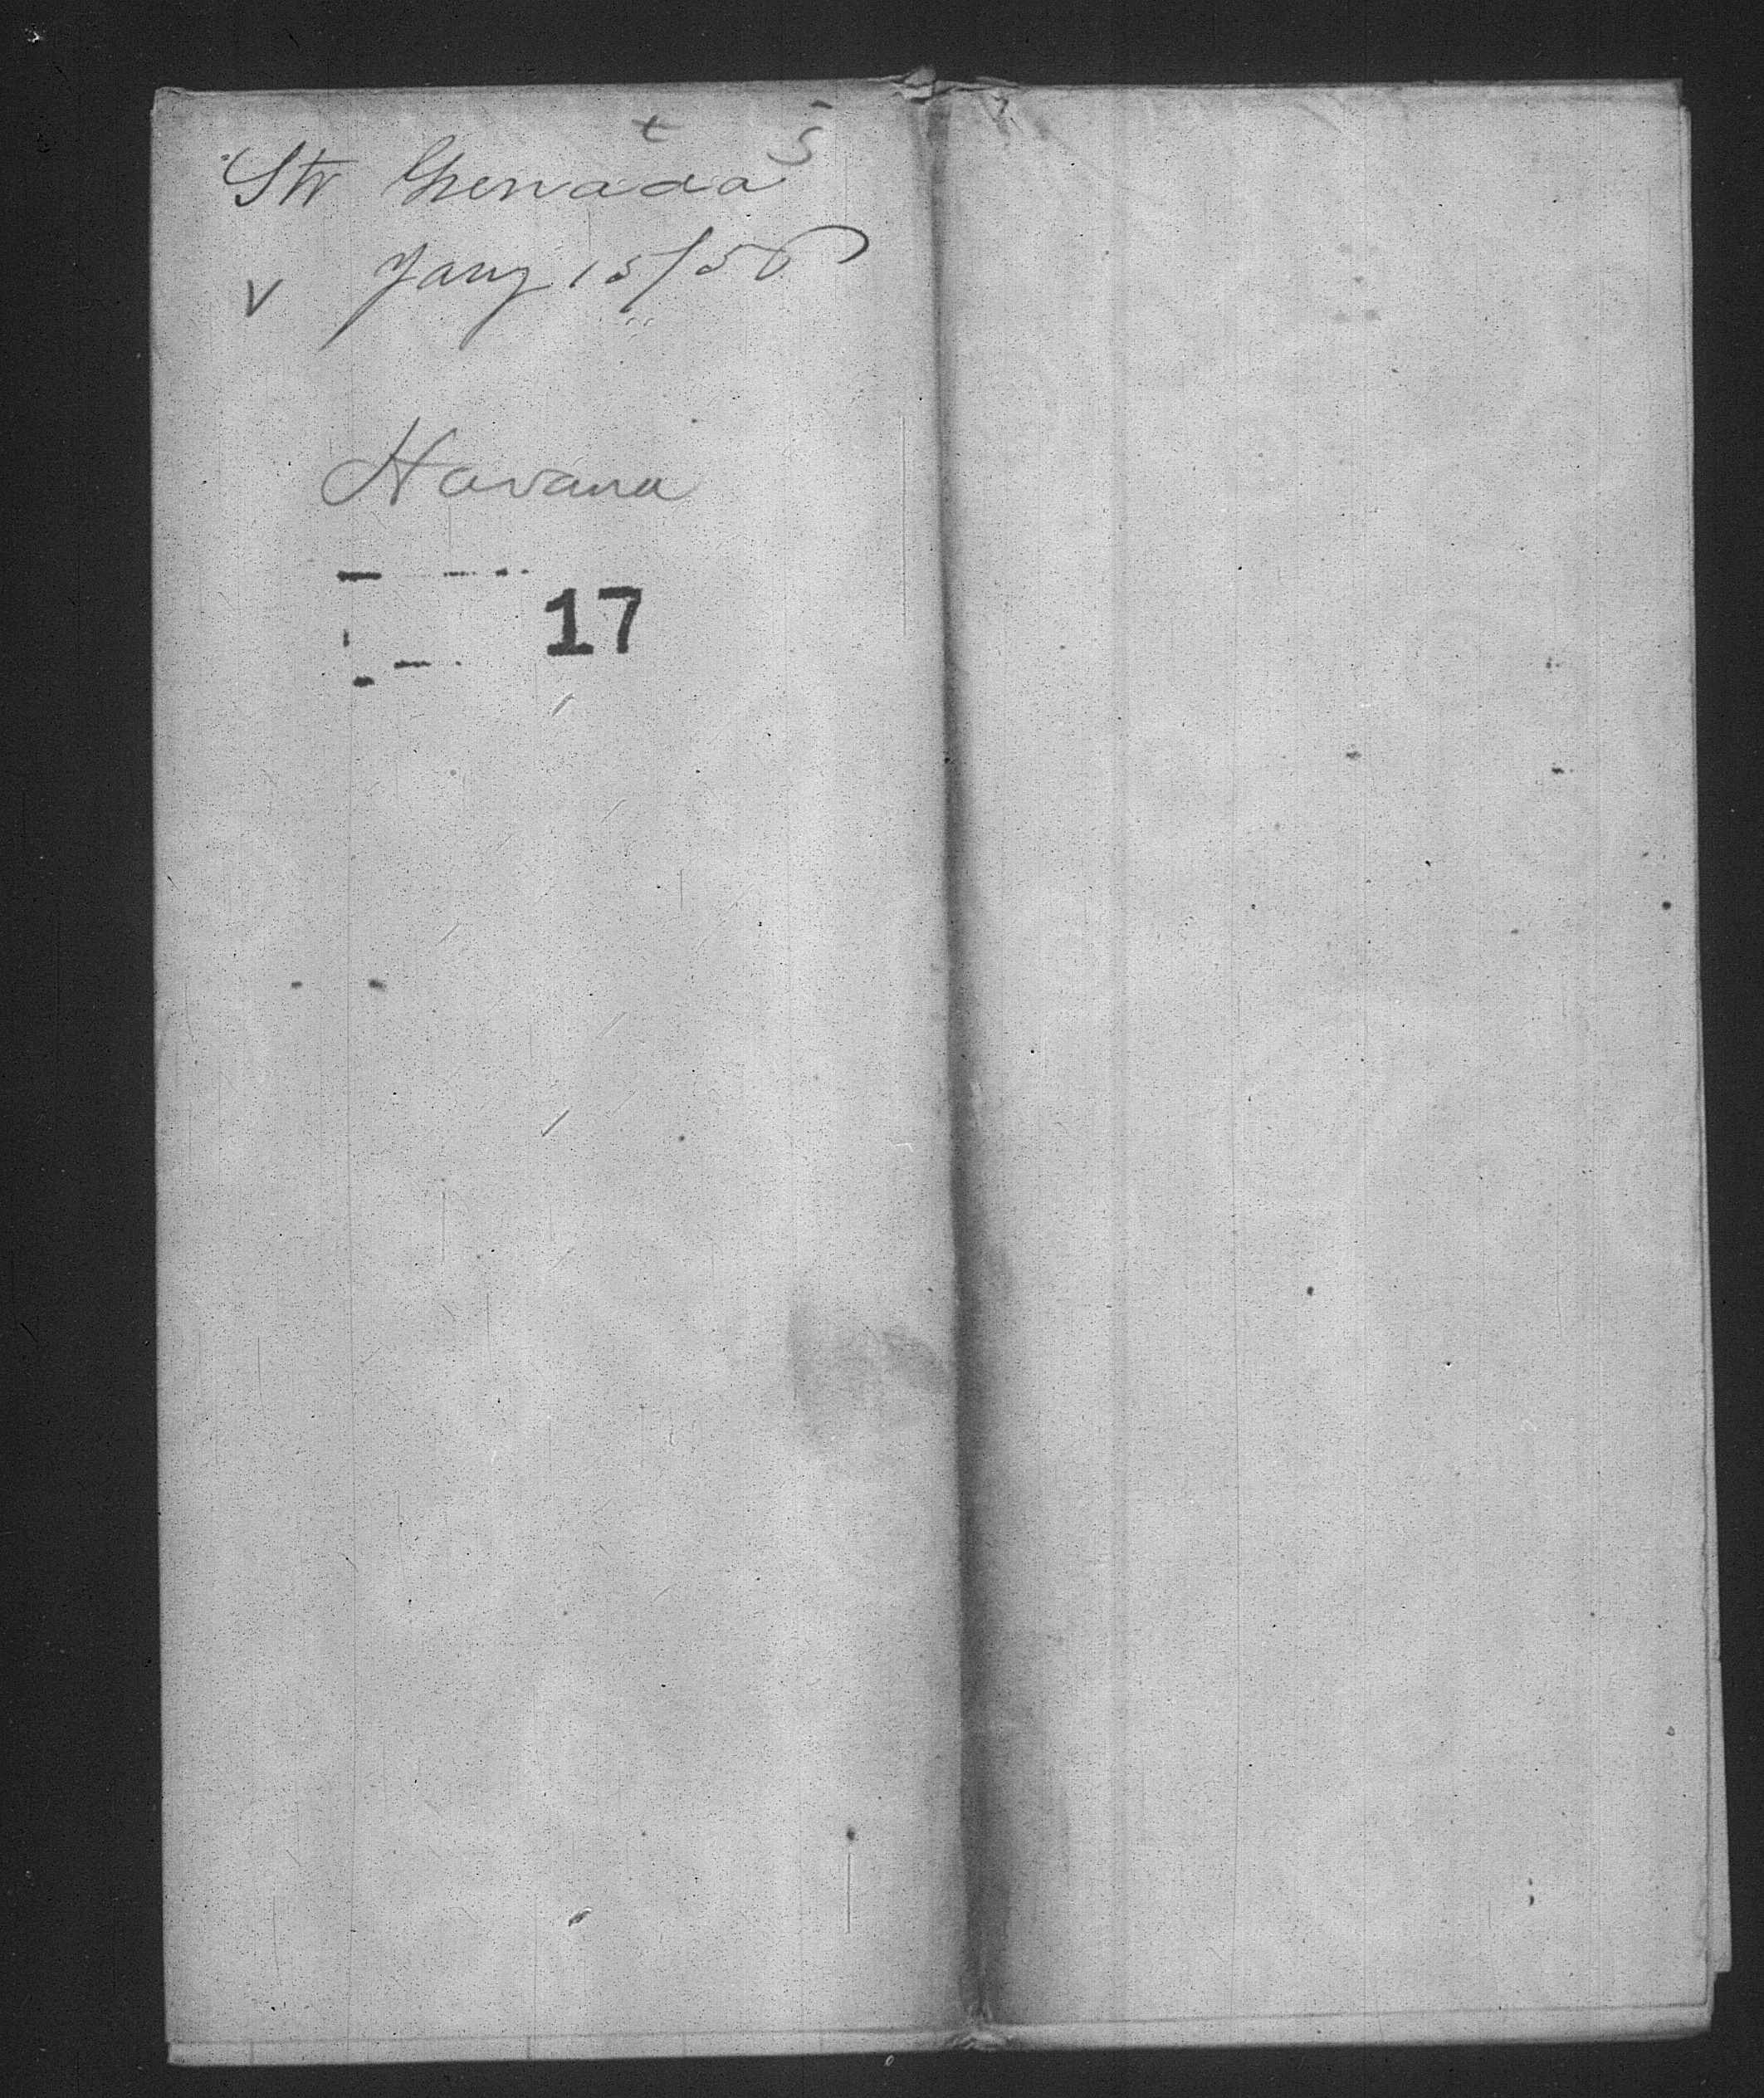 t 5
Str Grenada
v Jany 15/56
Havana
17